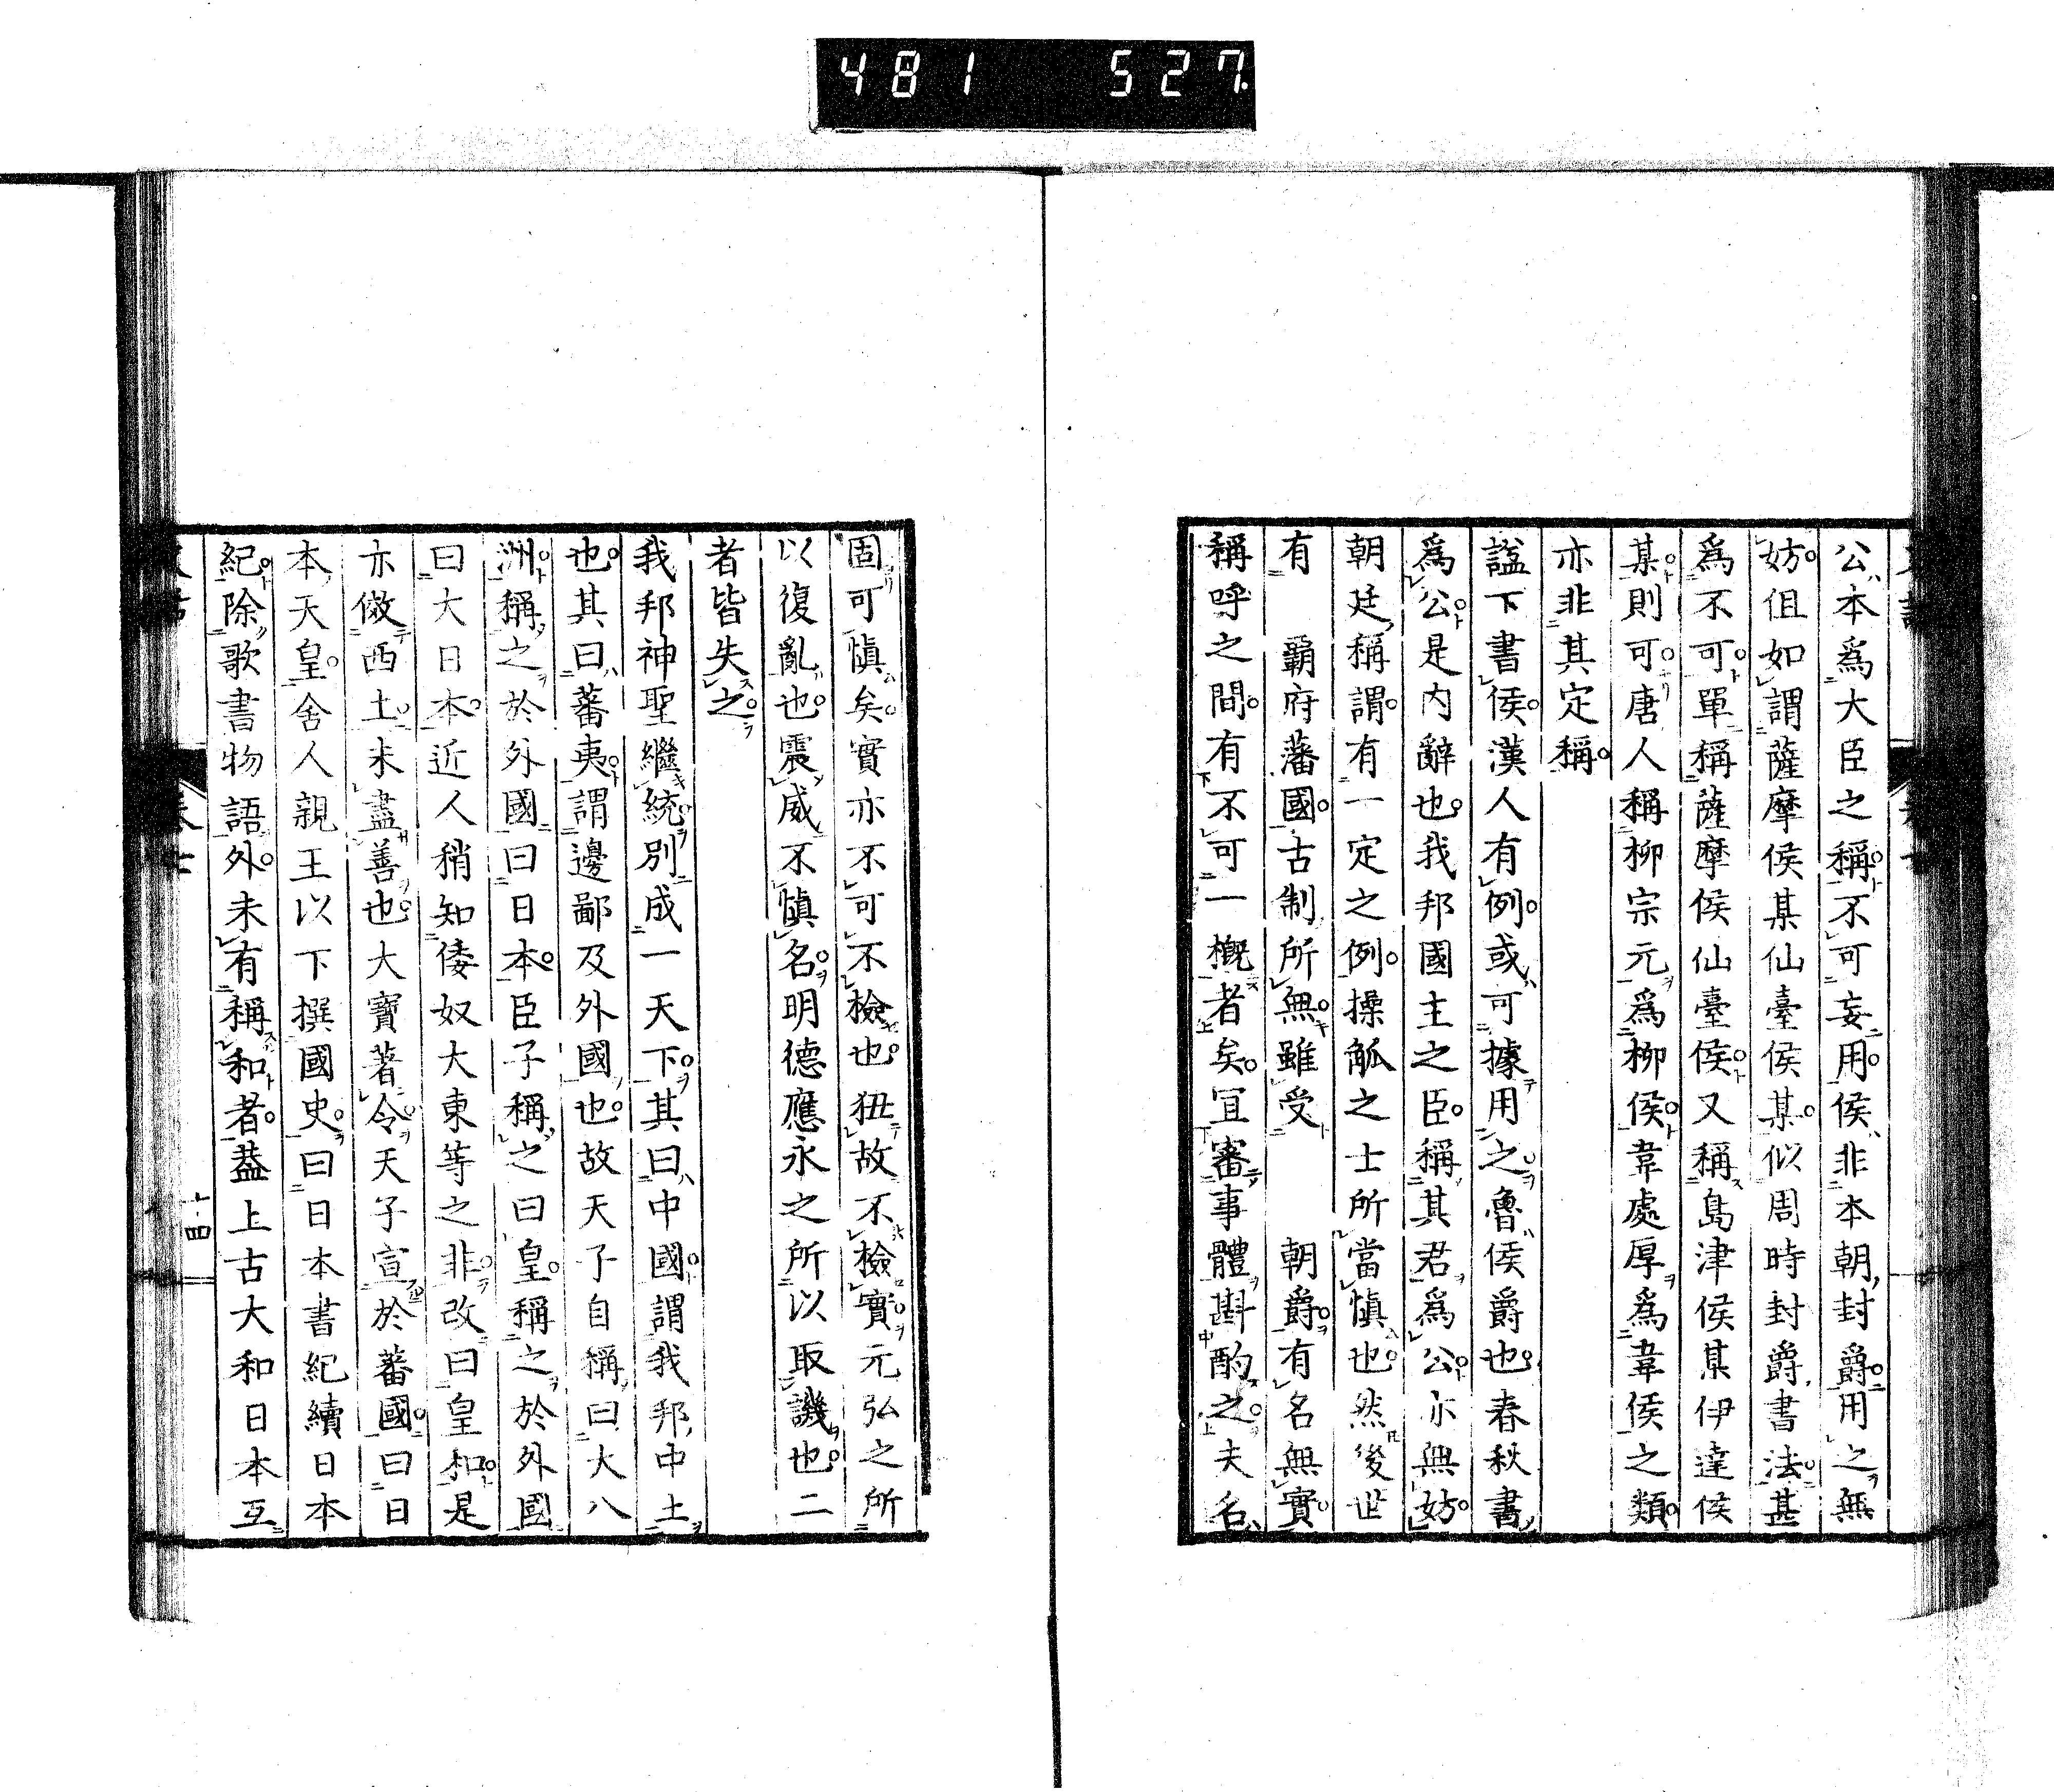 481 527.
公本爲大臣之稱不可妄用侯非本朝封爵用之無
妨但如謂薩摩侯某仙臺侯某似周時封爵書法甚
爲不可單稱薩摩侯仙臺侯又稱島津侯某伊達侯
某則可唐人稱柳宗元爲柳侯韋處厚爲韋侯之類
亦非其定稱
謚下書侯漢人有例或可據用之魯侯爵也春秋書
爲公是内辭也我邦國主之臣稱其君爲公亦無妨
朝廷稱謂有一定之例操觚之士所當愼也然後世
有　覇府藩國古制所無雖受　　朝爵有名無實
稱呼之間有不可一概者矣宜審事體斟酌之夫名
固可愼矣實亦不可不檢也狃故不檢實元弘之所
以復亂也震威不愼名明德應永之所以取譏也二
者皆失之
我邦神聖繼統別成一天下其曰中國謂我邦中土
也其曰蕃夷謂邊鄙及外國也故天子自稱曰大八
洲稱之於外國曰日本臣子稱之曰皇稱之於外國
曰大日本近人稍知倭奴大東等之非改曰皇和是
亦倣西土未盡善也大寶著令天子宣於蕃國曰日
本天皇舍人親王以下撰國史曰日本書紀續日本
紀除歌書物語外未有稱和者葢上古大和日本互
十四